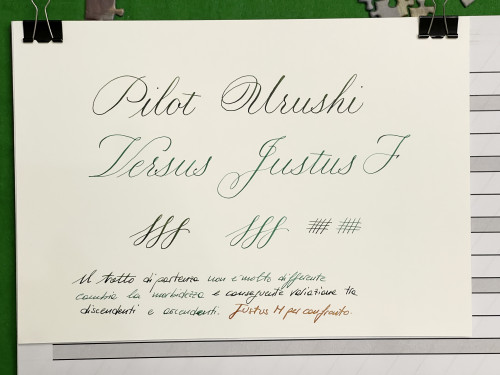 Pilot Urushi
Versus Justus F
fff fff ## ##
Il tratto di partenza non è molto differente
cambia la morbidezza e conseguente variazione tra
discendenti e ascendenti. Justus M per confronto.